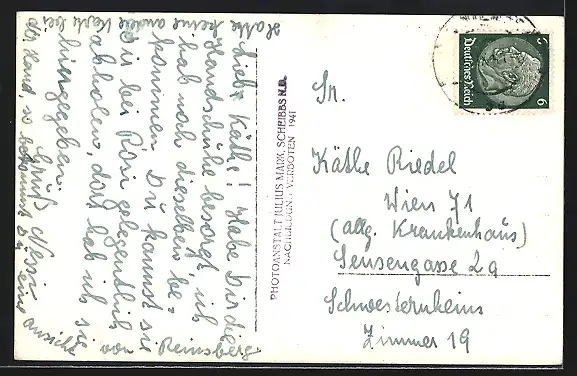 Liebe Käthe! Habe Dir die
Handschuhe besorgt, ich
hab noch dieselben be-
kommen. Du kannst sie
Dir bei Rosi gelegentlich
abholen, dort hab ich sie
hingegeben.
Gruß
Hatte keine andere Karte bei
der Hand, so bekommst Du eine Ansicht
von Reinsberg
PHOTOANSTALT JULIUS MARK, SCHEIBBS N.D.
NACHBILDUNG VERBOTEN 1941
Deutsches Reich
6
6
Käthe Riedel
Wien 71
(allg. Krankenhaus)
Sensengasse 2a
Schwesternheim
Zimmer 19